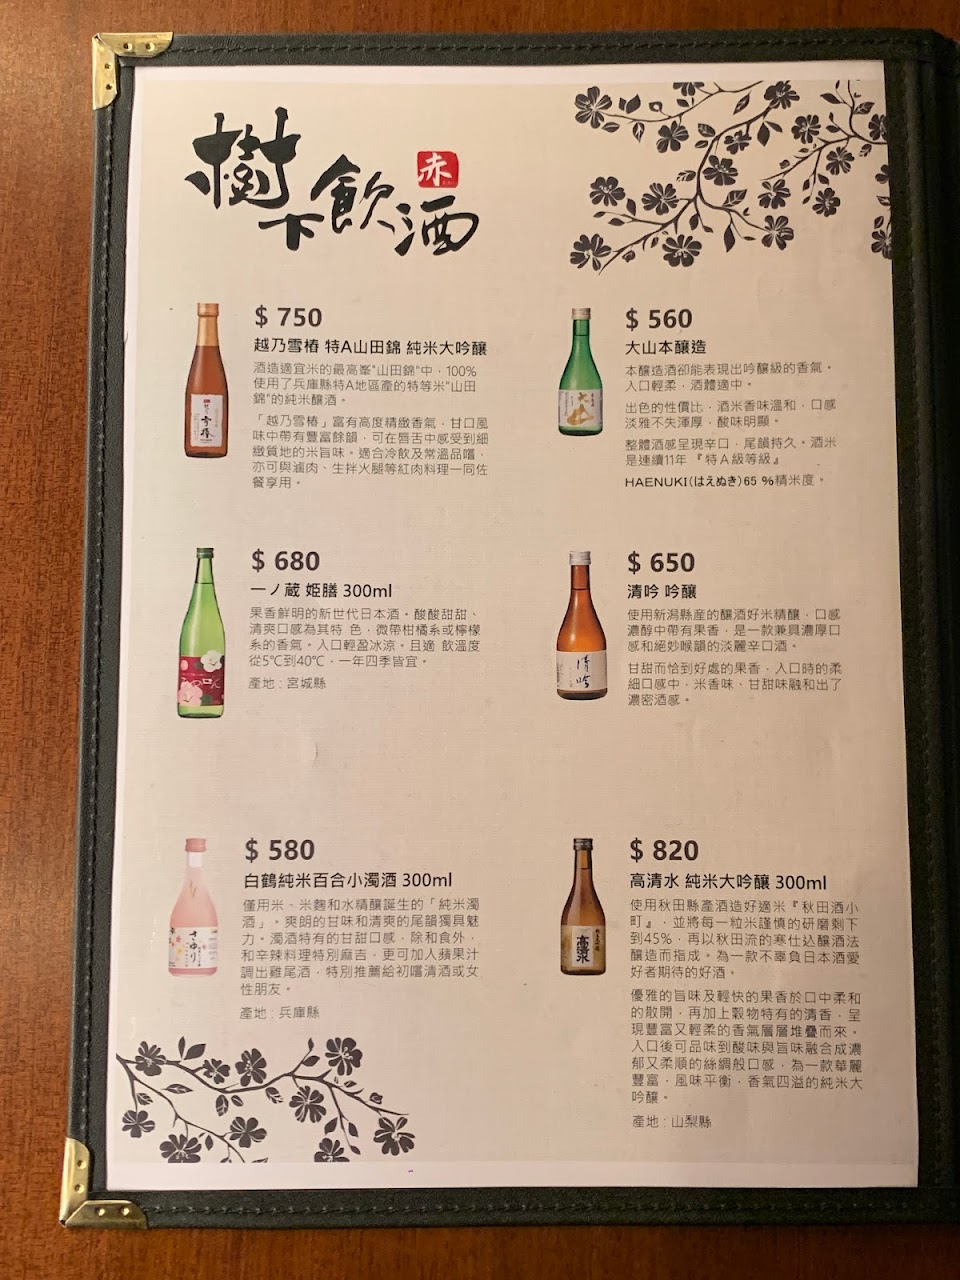 樹下飲酒
赤
$ 750
越乃雪椿 特A山田錦 純米大吟釀
酒造適宜米的最高峯"山田錦"中，100%
使用了兵庫縣特A地區產的特等米"山田
錦"的純米釀酒。
「越乃雪椿」富有高度精緻香氣，甘口風
味中帶有豐富餘韻，可在唇舌中感受到細
緻質地的米旨味。適合冷飲及常溫品嚐，
亦可與滷肉、生拌火腿等紅肉料理一同佐
餐享用。
$ 560
大山本釀造
本釀造酒卻能表現出吟釀級的香氣。
入口輕柔，酒體適中。
出色的性價比，酒米香味溫和，口感
淡雅不失渾厚，酸味明顯。
整體酒感呈現辛口，尾韻持久。酒米
是連續11年『特A級等級』
HAENUKI(はえぬき)65 %精米度。
$ 680
一ノ蔵 姫膳 300ml
果香鮮明的新世代日本酒。酸酸甜甜、
清爽口感為其特 色，微帶柑橘系或檸檬
系的香氣。入口輕盈冰涼。且適 飲溫度
從5℃到40℃，一年四季皆宜。
產地：宮城縣
$ 650
清吟 吟釀
使用新潟縣産的釀酒好米精釀，口感
濃醇中帶有果香，是一款兼具濃厚口
感和絕妙喉韻的淡麗辛口酒。
甘甜而恰到好處的果香，入口時的柔
細口感中，米香味、甘甜味融和出了
濃密酒感。
$ 580
白鶴純米百合小濁酒 300ml
僅用米、米麴和水精釀誕生的「純米濁
酒」。爽朗的甘味和清爽的尾韻獨具魅
力。濁酒特有的甘甜口感，除和食外，
和辛辣料理特別麻吉，更可加入蘋果汁
調出雞尾酒，特別推薦給初嚐清酒或女
性朋友。
產地：兵庫縣
$ 820
高清水 純米大吟釀 300ml
使用秋田縣產酒造好適米『秋田酒小
町』，並將每一粒米謹慎的研磨剩下
到45%，再以秋田流的寒仕込釀酒法
釀造而指成。為一款不辜負日本酒愛
好者期待的好酒。
優雅的旨味及輕快的果香於口中柔和
的散開，再加上穀物特有的清香，呈
現豐富又輕柔的香氣層層堆疊而來。
入口後可品味到酸味與旨味融合成濃
郁又柔順的絲綢般口感，為一款華麗
豐富，風味平衡，香氣四溢的純米大
吟釀。
產地：山梨縣
雪椿
大山
清吟
さゆり
高清水